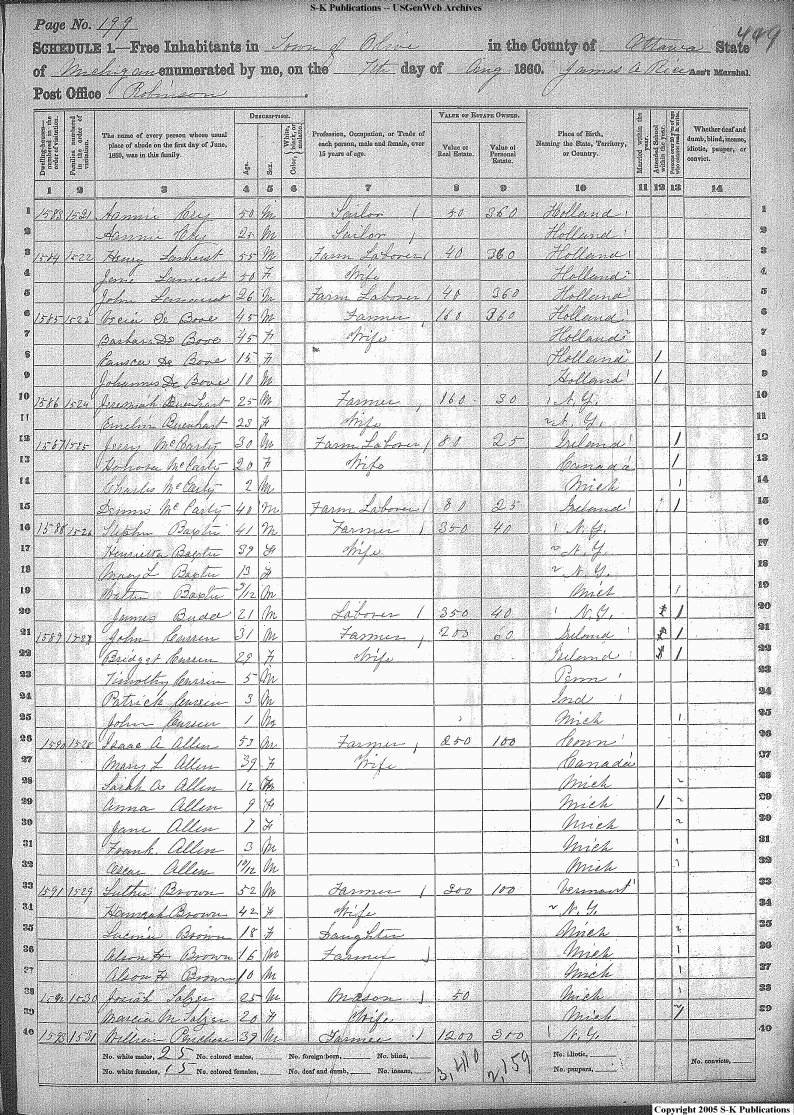 S-K Publications -- USGenWeb Archives
Page No. 199
499
SCHEDULE 1.—Free Inhabitants in Town of Olive in the County of Ottawa State
of Michigan enumerated by me, on the 7th day of Aug 1860. James A Rice Ass't Marshal.
Post Office Robinson
Dwelling-houses—numbered in the order of visitation.
Families numbered in the order of visitation.
The name of every person whose usual place of abode on the first day of June, 1860, was in this family.
DESCRIPTION.
Age.
Sex.
Color, White, black, or mulatto.
Profession, Occupation, or Trade of each person, male and female, over 15 years of age.
VALUE OF ESTATE OWNED.
Value of Real Estate.
Value of Personal Estate.
Place of Birth, Naming the State, Territory, or Country.
Married within the year.
Attended School within the year.
Whether deaf and dumb, blind, insane, idiotic, pauper, or convict.
1 2 3 4 5 6 7 8 9 10 11 12 13 14
1 1583 1521 50 M Sailor 50 360 Holland 1
2 25 M Sailor Holland 2
3 1584 1522 Henry 55 M Farm Laborer 40 360 Holland 3
4 Jane 50 F Wife Holland 4
5 John 26 M Farm Laborer 40 360 Holland 5
6 1585 1523 De Bove 45 M Farmer 160 360 Holland 6
7 Barbara De Bove 45 F Wife Holland 7
8 De Bove 15 F Holland 1 8
9 Johannes De Bove 10 M Holland 1 9
10 1586 1524 Jeremiah 25 M Farmer 160 30 N.Y. 10
11 23 F Wife N.Y. 11
12 1587 1525 Jerry McCarty 30 M Farm Laborer 80 25 Ireland 1 12
13 McCarty 20 F Wife Canada 1 13
14 Charles McCarty 2 M Mich 14
15 Dennis McCarty 40 M Farm Laborer 80 25 Ireland 1 15
16 1588 1526 Stephn Baxter 41 M Farmer 350 40 N.Y. 16
17 Henrietta Baxter 39 F Wife N.Y. 17
18 Mary L Baxter 13 F N.Y. 18
19 Walter Baxter 3/12 M Mich 19
20 James Budd 21 M Laborer 350 40 N.Y. 1 20
21 1589 1527 John Currin 31 M Farmer 200 60 Ireland 1 21
22 Bridget Currin 29 F Wife Ireland 1 22
23 Timothy Currin 5 M Penn 23
24 Patrick Currin 3 M Ind 24
25 John Currin 1 M Mich 25
26 1590 1528 Isaac A Allen 53 M Farmer 250 100 Conn 26
27 Mary L Allen 39 F Wife Canada 27
28 Sarah A Allen 12 F Mich 28
29 Anna Allen 9 F Mich 1 29
30 Jane Allen 7 F Mich 30
31 Frank Allen 3 M Mich 31
32 Oscar Allen 10/12 M Mich 32
33 1591 1529 Luther Brown 52 M Farmer 300 100 Vermont 33
34 Hannah Brown 42 F Wife N.Y. 34
35 Brown 18 F Daughter Mich 35
36 Alson H Brown 16 M Farmer Mich 36
37 Brown 10 M Mich 37
38 1592 1530 Josiah 25 M Mason 50 Mich 38
39 Marcia M 20 F Wife Mich 39
40 1593 1531 William 39 M Farmer 1200 300 N.Y. 40
No. white males, 25 No. colored males, No. foreign born, No. blind, 3,410 2,159 No. idiotic, No. convicts,
No. white females, 15 No. colored females, No. deaf and dumb, No. insane, No. paupers,
Copyright 2005 S-K Publications